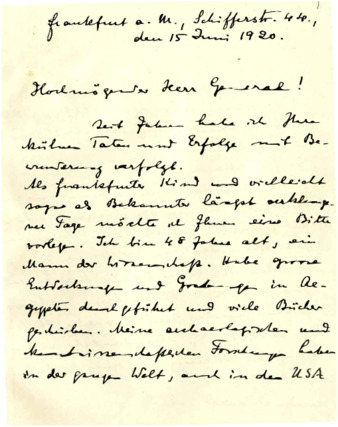 Frankfurt a. M., Schifferstr. 44.,
den 15 Juni 1920.
Hochmögender Herr General!
Seit Jahren habe ich Ihre
kühnen Taten und Erfolge mit Be-
wunderung verfolgt.
Als Frankfurter Kind und vielleicht
sogar als Bekannter längst verklunge-
ner Tage möchte ich Ihnen eine Bitte
vorlegen. Ich bin 48 Jahre alt, ein
Mann der Wissenschaft. Habe grosse
Entdeckungen und Grabungen in Ae-
gypten durchgeführt und viele Bücher
geschrieben. Meine archaeologischen und
kunstwissenschaftlichen Forschungen haben
in der ganzen Welt, auch in den USA